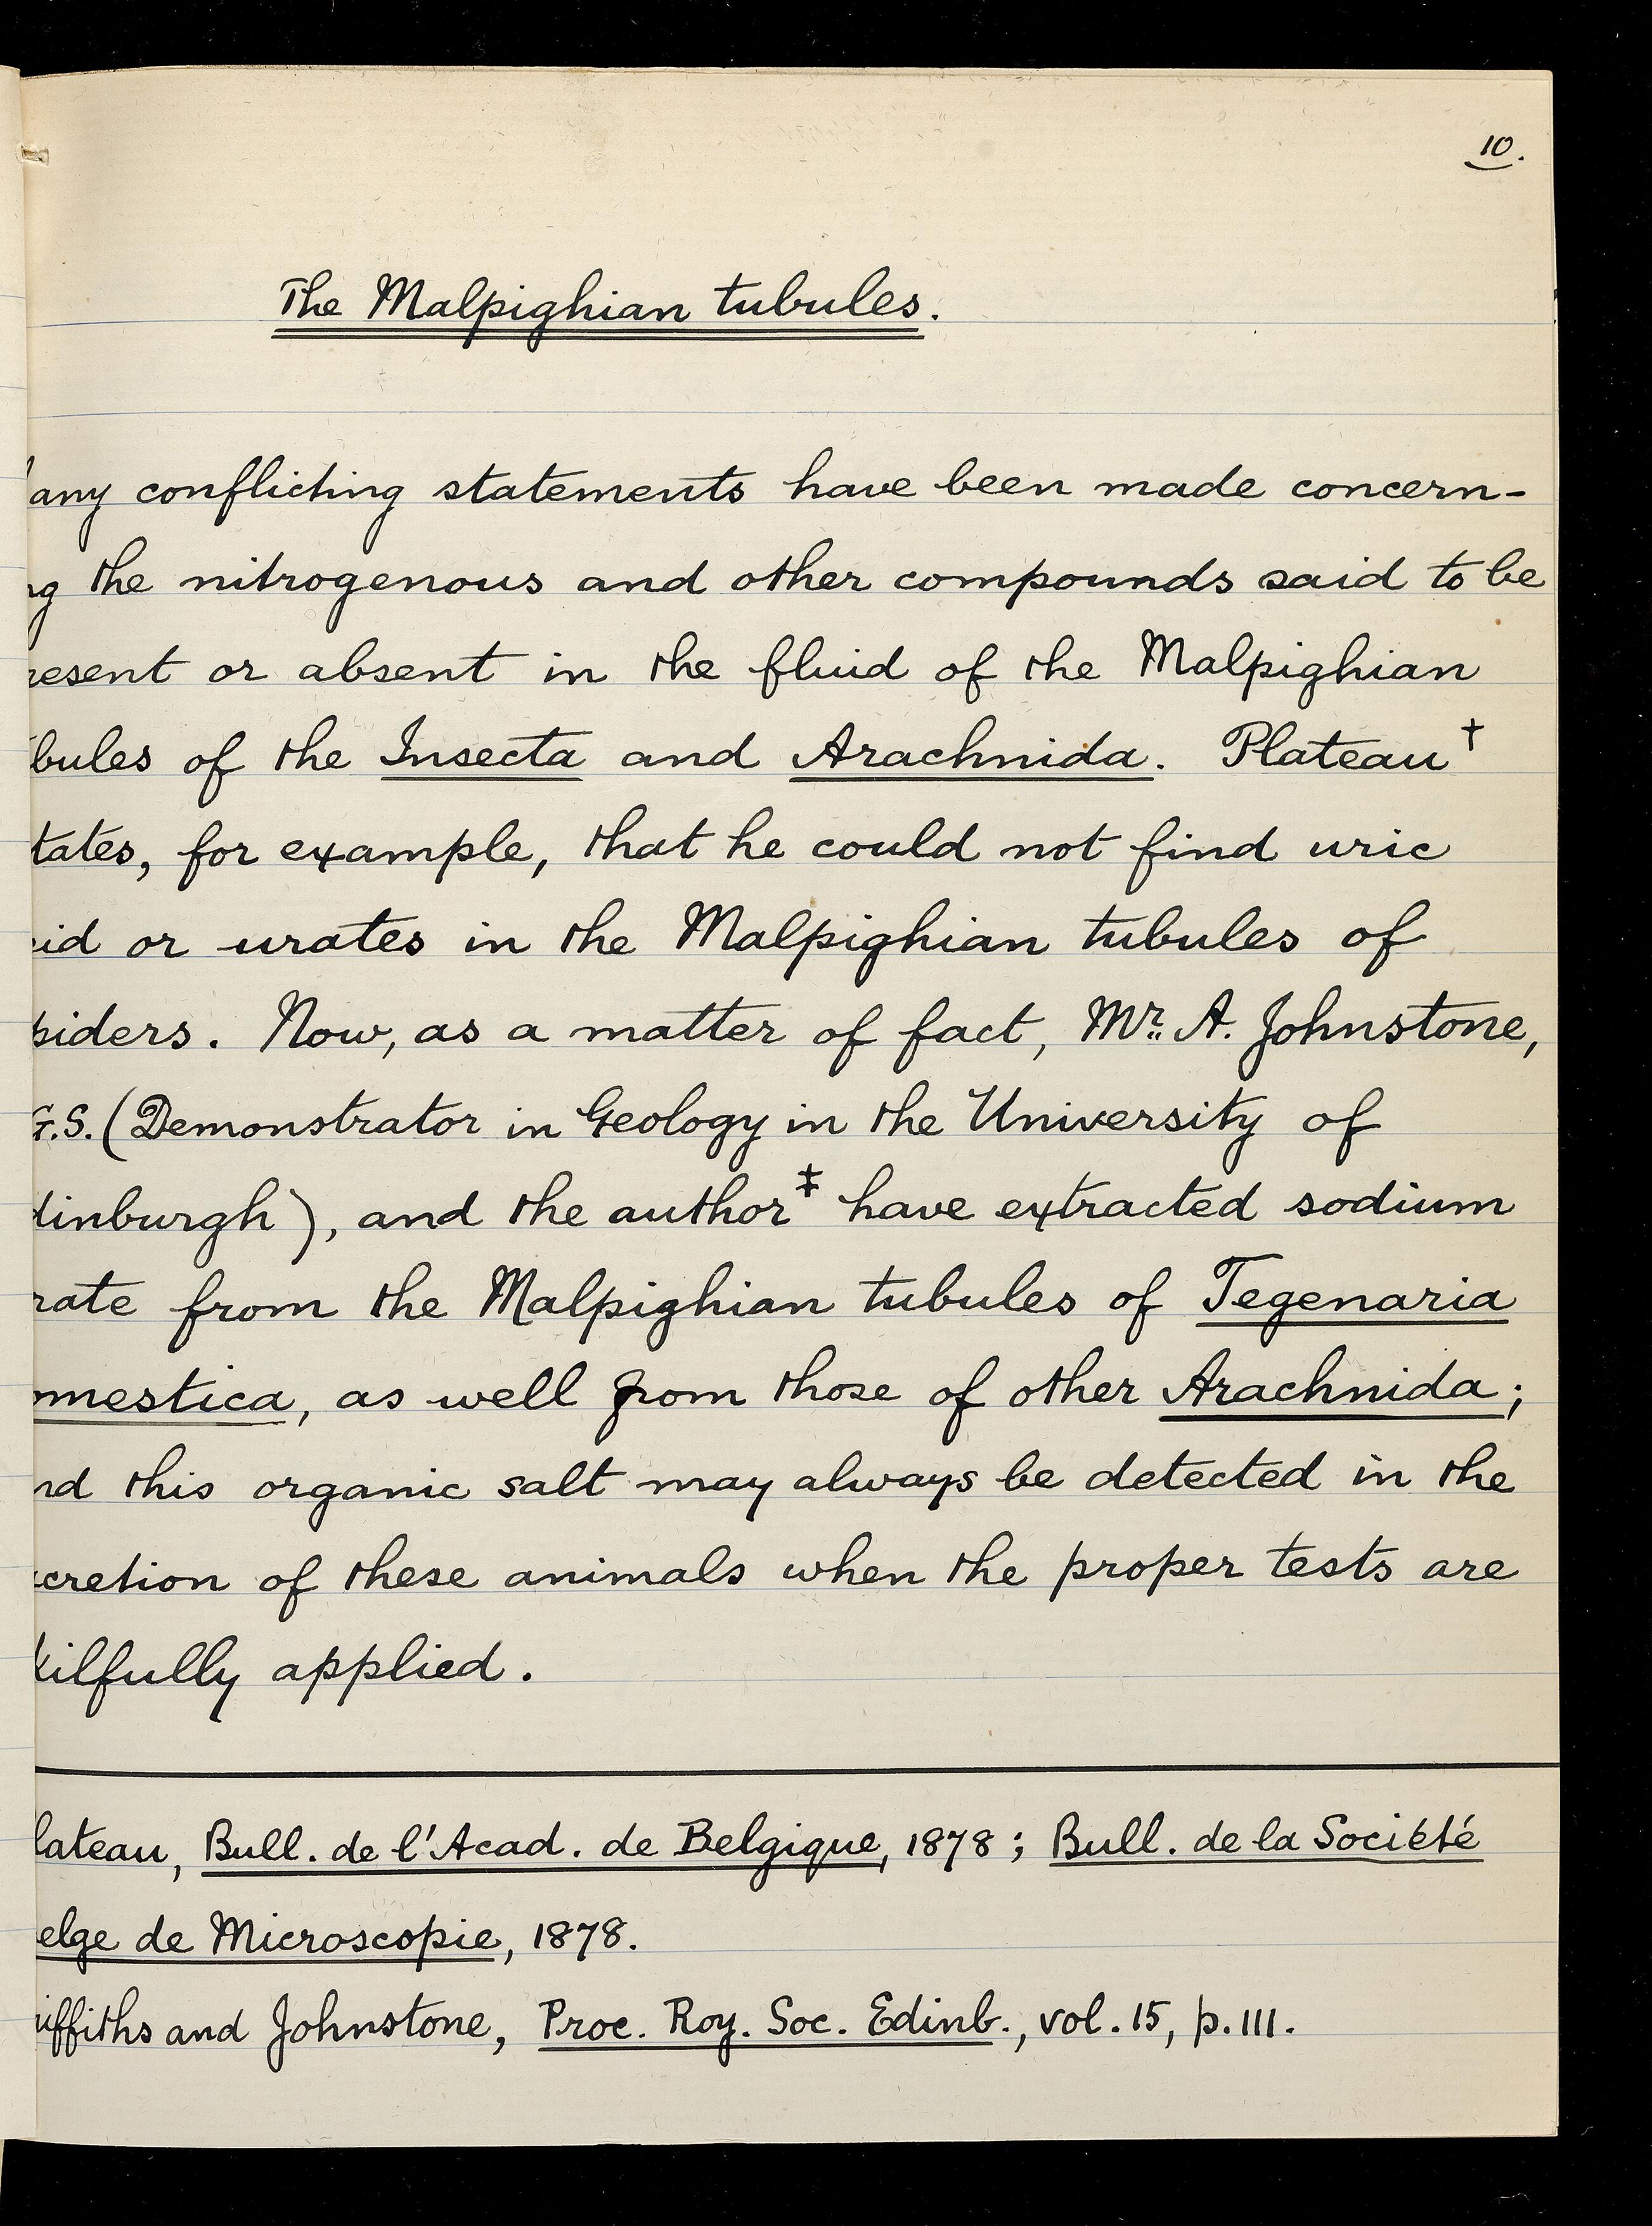 10.
The Malpighian tubules.
any conflicting statements have been made concern-
ng the nitrogenous and other compounds said to be
resent or absent in the fluid of the Malpighian
bules of the Insecta and Arachnida. Plateau†
tates, for example, that he could not find uric
id or urates in the Malpighian tubules of
piders. Now, as a matter of fact, Mr. A. Johnstone,
G.S. (Demonstrator in Geology in the University of
dinburgh), and the author‡ have extracted sodium
rate from the Malpighian tubules of Tegenaria
mestica, as well from those of other Arachnida;
nd this organic salt may always be detected in the
cretion of these animals when the proper tests are
kilfully applied.
lateau, Bull. de l'Acad. de Belgique, 1878; Bull. de la Société
elge de Microscopie, 1878.
iffiths and Johnstone, Proc. Roy. Soc. Edinb., vol. 15, p. 111.